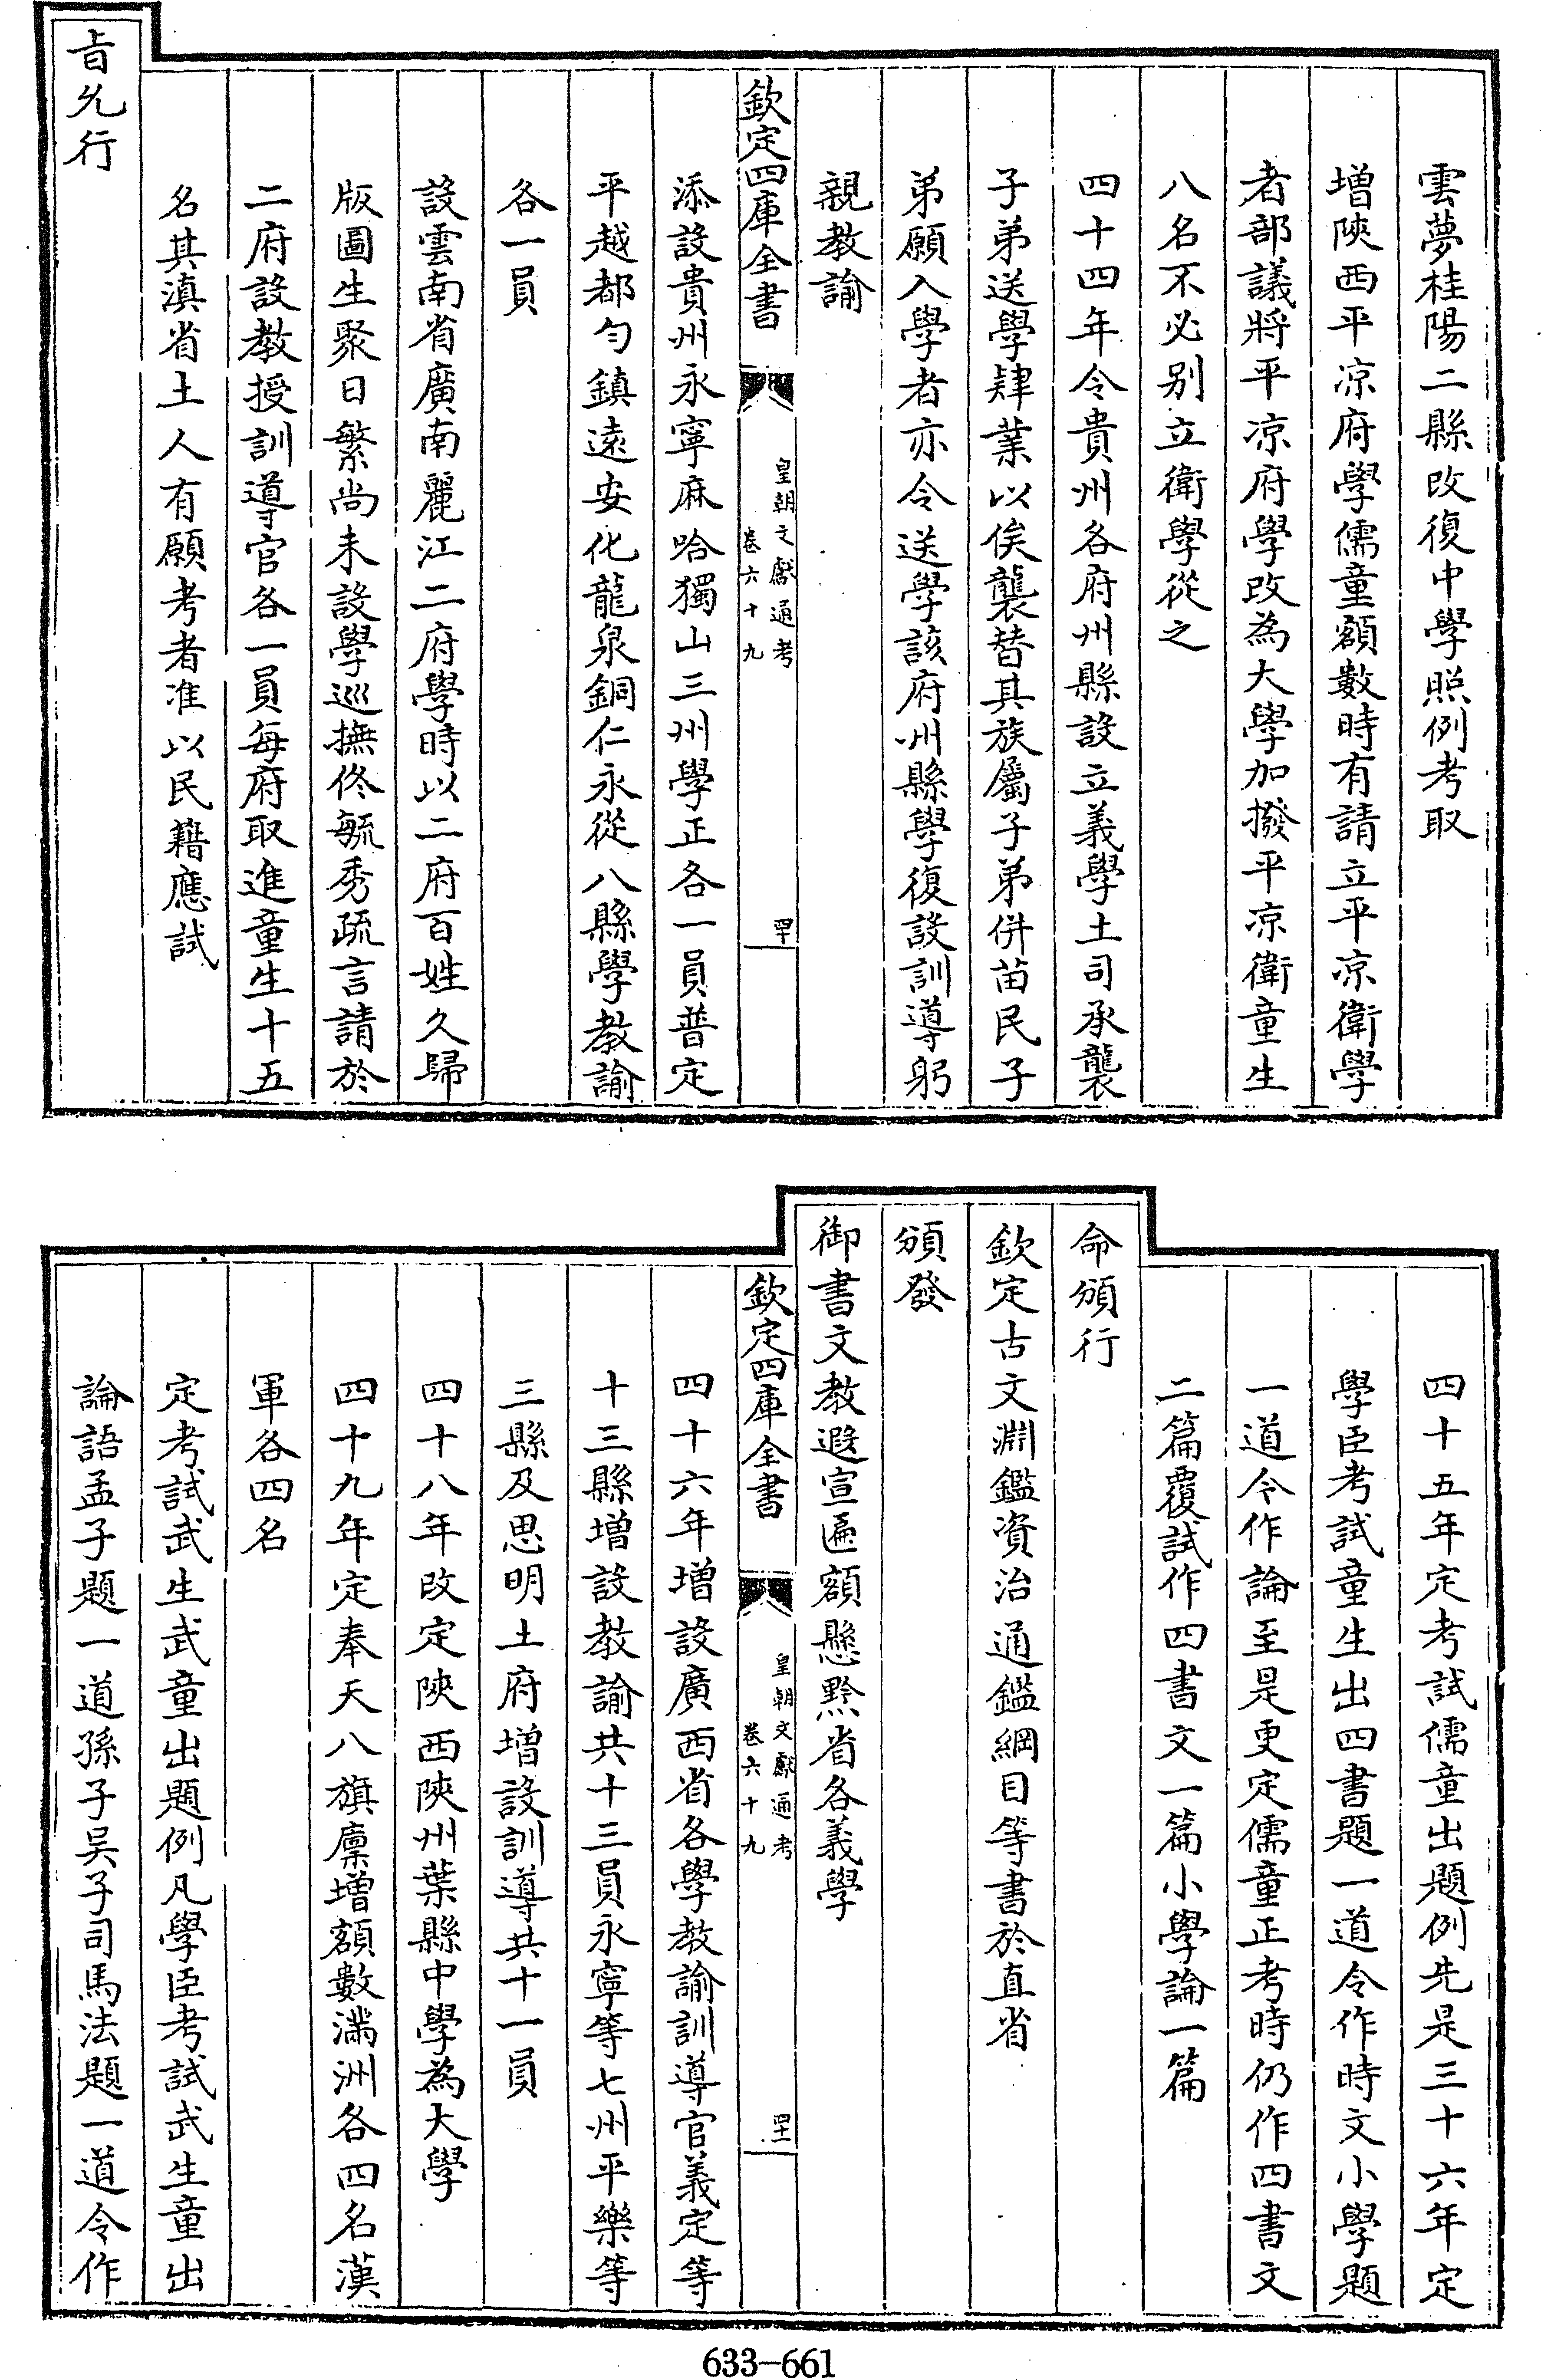 雲夢桂陽二縣改復中學照例考取
增陜西平凉府學儒童額數時有請立平凉衛學
者部議將平凉府學改為大學加撥平凉衛童生
八名不必别立衛學從之
四十四年令貴州各府州縣設立義學土司承襲
子弟送學肄業以俟襲替其族屬子弟併苗民子
弟願入學者亦令送學該府州縣學復設訓導躬
親教諭
欽定四庫全書
皇朝文獻通考
卷六十九
四十
添設貴州永寧麻哈獨山三州學正各一員普定
平越都匀鎮遠安化龍泉銅仁永從八縣學教諭
各一員
設雲南省廣南麗江二府學時以二府百姓久歸
版圖生聚日繁尚未設學巡撫佟毓秀疏言請於
二府設教授訓導官各一員每府取進童生十五
名其滇省土人有願考者准以民籍應試
旨允行
四十五年定考試儒童出題例先是三十六年定
學臣考試童生出四書題一道令作時文小學題
一道令作論至是更定儒童正考時仍作四書文
二篇覆試作四書文一篇小學論一篇
命頒行
欽定古文淵鑑資治通鑑綱目等書於直省
頒發
御書文教遐宣匾額懸黔省各義學
欽定四庫全書
皇朝文獻通考
卷六十九
四十一
四十六年增設廣西省各學教諭訓導官義定等
十三縣增設教諭共十三員永寧等七州平樂等
三縣及思明土府增設訓導共十一員
四十八年改定陜西陜州葉縣中學為大學
四十九年定奉天八旗廩增額數滿洲各四名漢
軍各四名
定考試武生武童出題例凡學臣考試武生童出
論語孟子題一道孫子吳子司馬法題一道令作
633-661